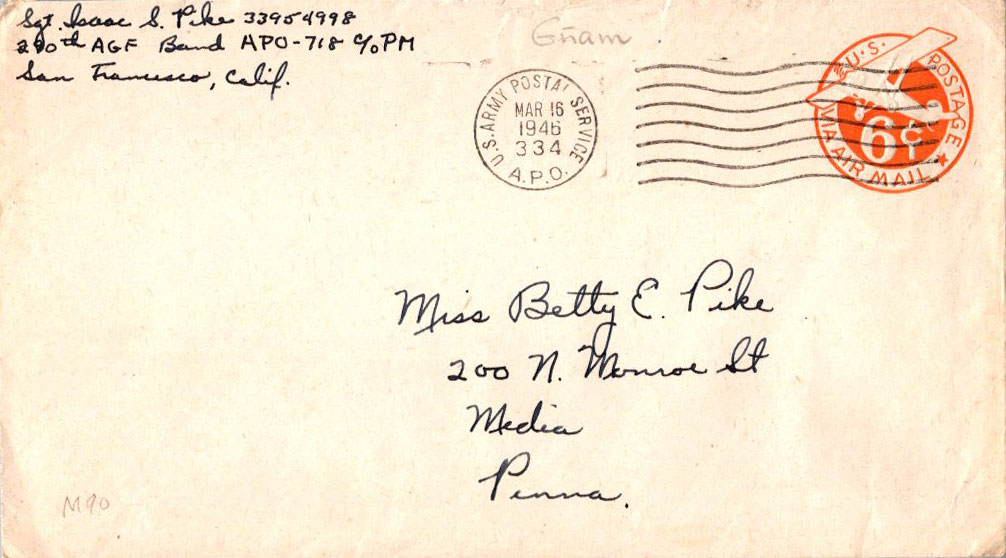 Sgt. Isaac S. Pike 33954998
290th AGF Band APO-718 c/o PM
San Francisco, Calif.
Guam
U.S. ARMY POSTAL SERVICE
MAR 16
1946
334
A.P.O.
U.S. POSTAGE
6¢
VIA AIR MAIL
Miss Betty E. Pike
200 N. Monroe St
Media
Penna.
M90